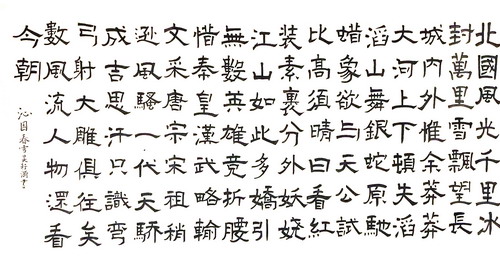 北國風光千里冰
封萬里雪飄望長
城内外惟余莽莽
大河上下頓失滔
滔山舞銀蛇原馳
蜡象欲与天公試
比高須晴日看紅
装素裹分外妖娆
江山如此多嬌引
無數英雄競折腰
惜秦皇漢武略輸
文采唐宗宋祖稍
遜風騷一代天驕
成吉思汗只識彎
弓射大雕俱往矣
數風流人物還看
今朝
沁园春雪